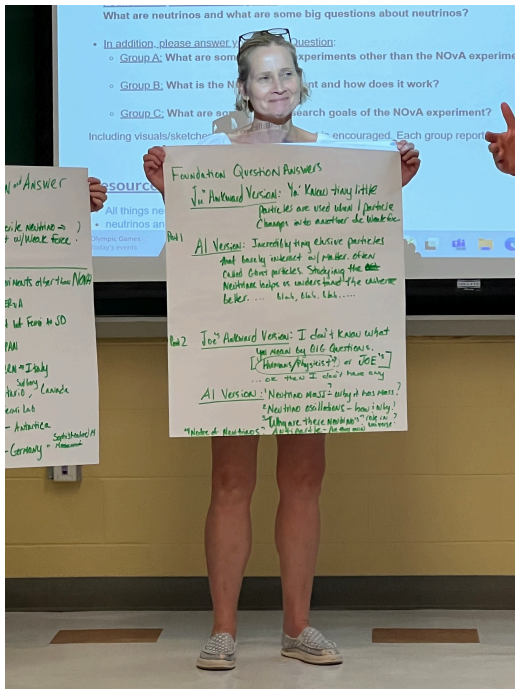 What are neutrinos and what are some big questions about neutrinos?
• In addition, please answer y Question:
Group A: What are som xperiments other than the NOvA experime
Group B: What is the N nt and how does it work?
Group C: What are so search goals of the NOvA experiment?
Including visuals/sketche is encouraged. Each group report
esource
All things ne
neutrinos an
Olympic Games
Today's events
Answer
rile Neutrino →
w/weak force.
ments other than NOVA
but Fermi to SD
→ Italy
Canada
Lab
- Antartica
- Germany
Foundation Question Answers
Part 1
Awkward Version: Ya' Know tiny little
particles are used when 1 particle
changes into another de weak force
AI Version: Incredibly tiny elusive particles
that barely interact w/ matter. often
called Ghost particles. Studying the
Neutrinos helps us understand the universe
better.... blah, blah, blah.....
Part 2
Joe's Awkward Version: I don't know what
you mean by BIG Questions.
[Humans/Physicist? or JOE's]
... ok then I don't have any
AI Version: 1Neutrino mass? - why it has mass?
2Neutrino oscillations - how/why?
3Why are there Neutrino's? role in universe?
"Nature of Neutrinos" Antiparticle - be their own